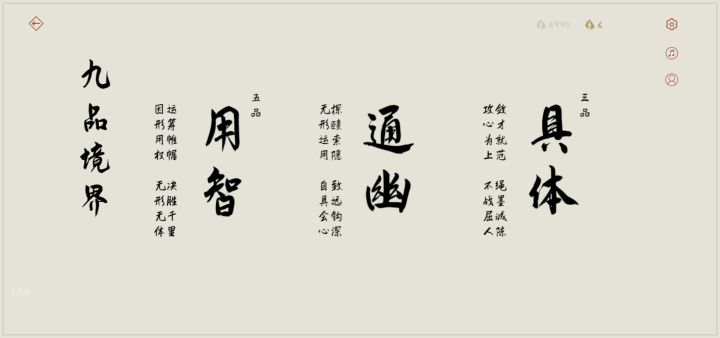 6990
6
三品
具体
敛才就范 绳墨诚陈
攻心为上 不战屈人
通幽
探赜索隐 致远钩深
无形运用 自具会心
五品
用智
运筹帷幄 决胜千里
因形用权 无形无体
九品境界